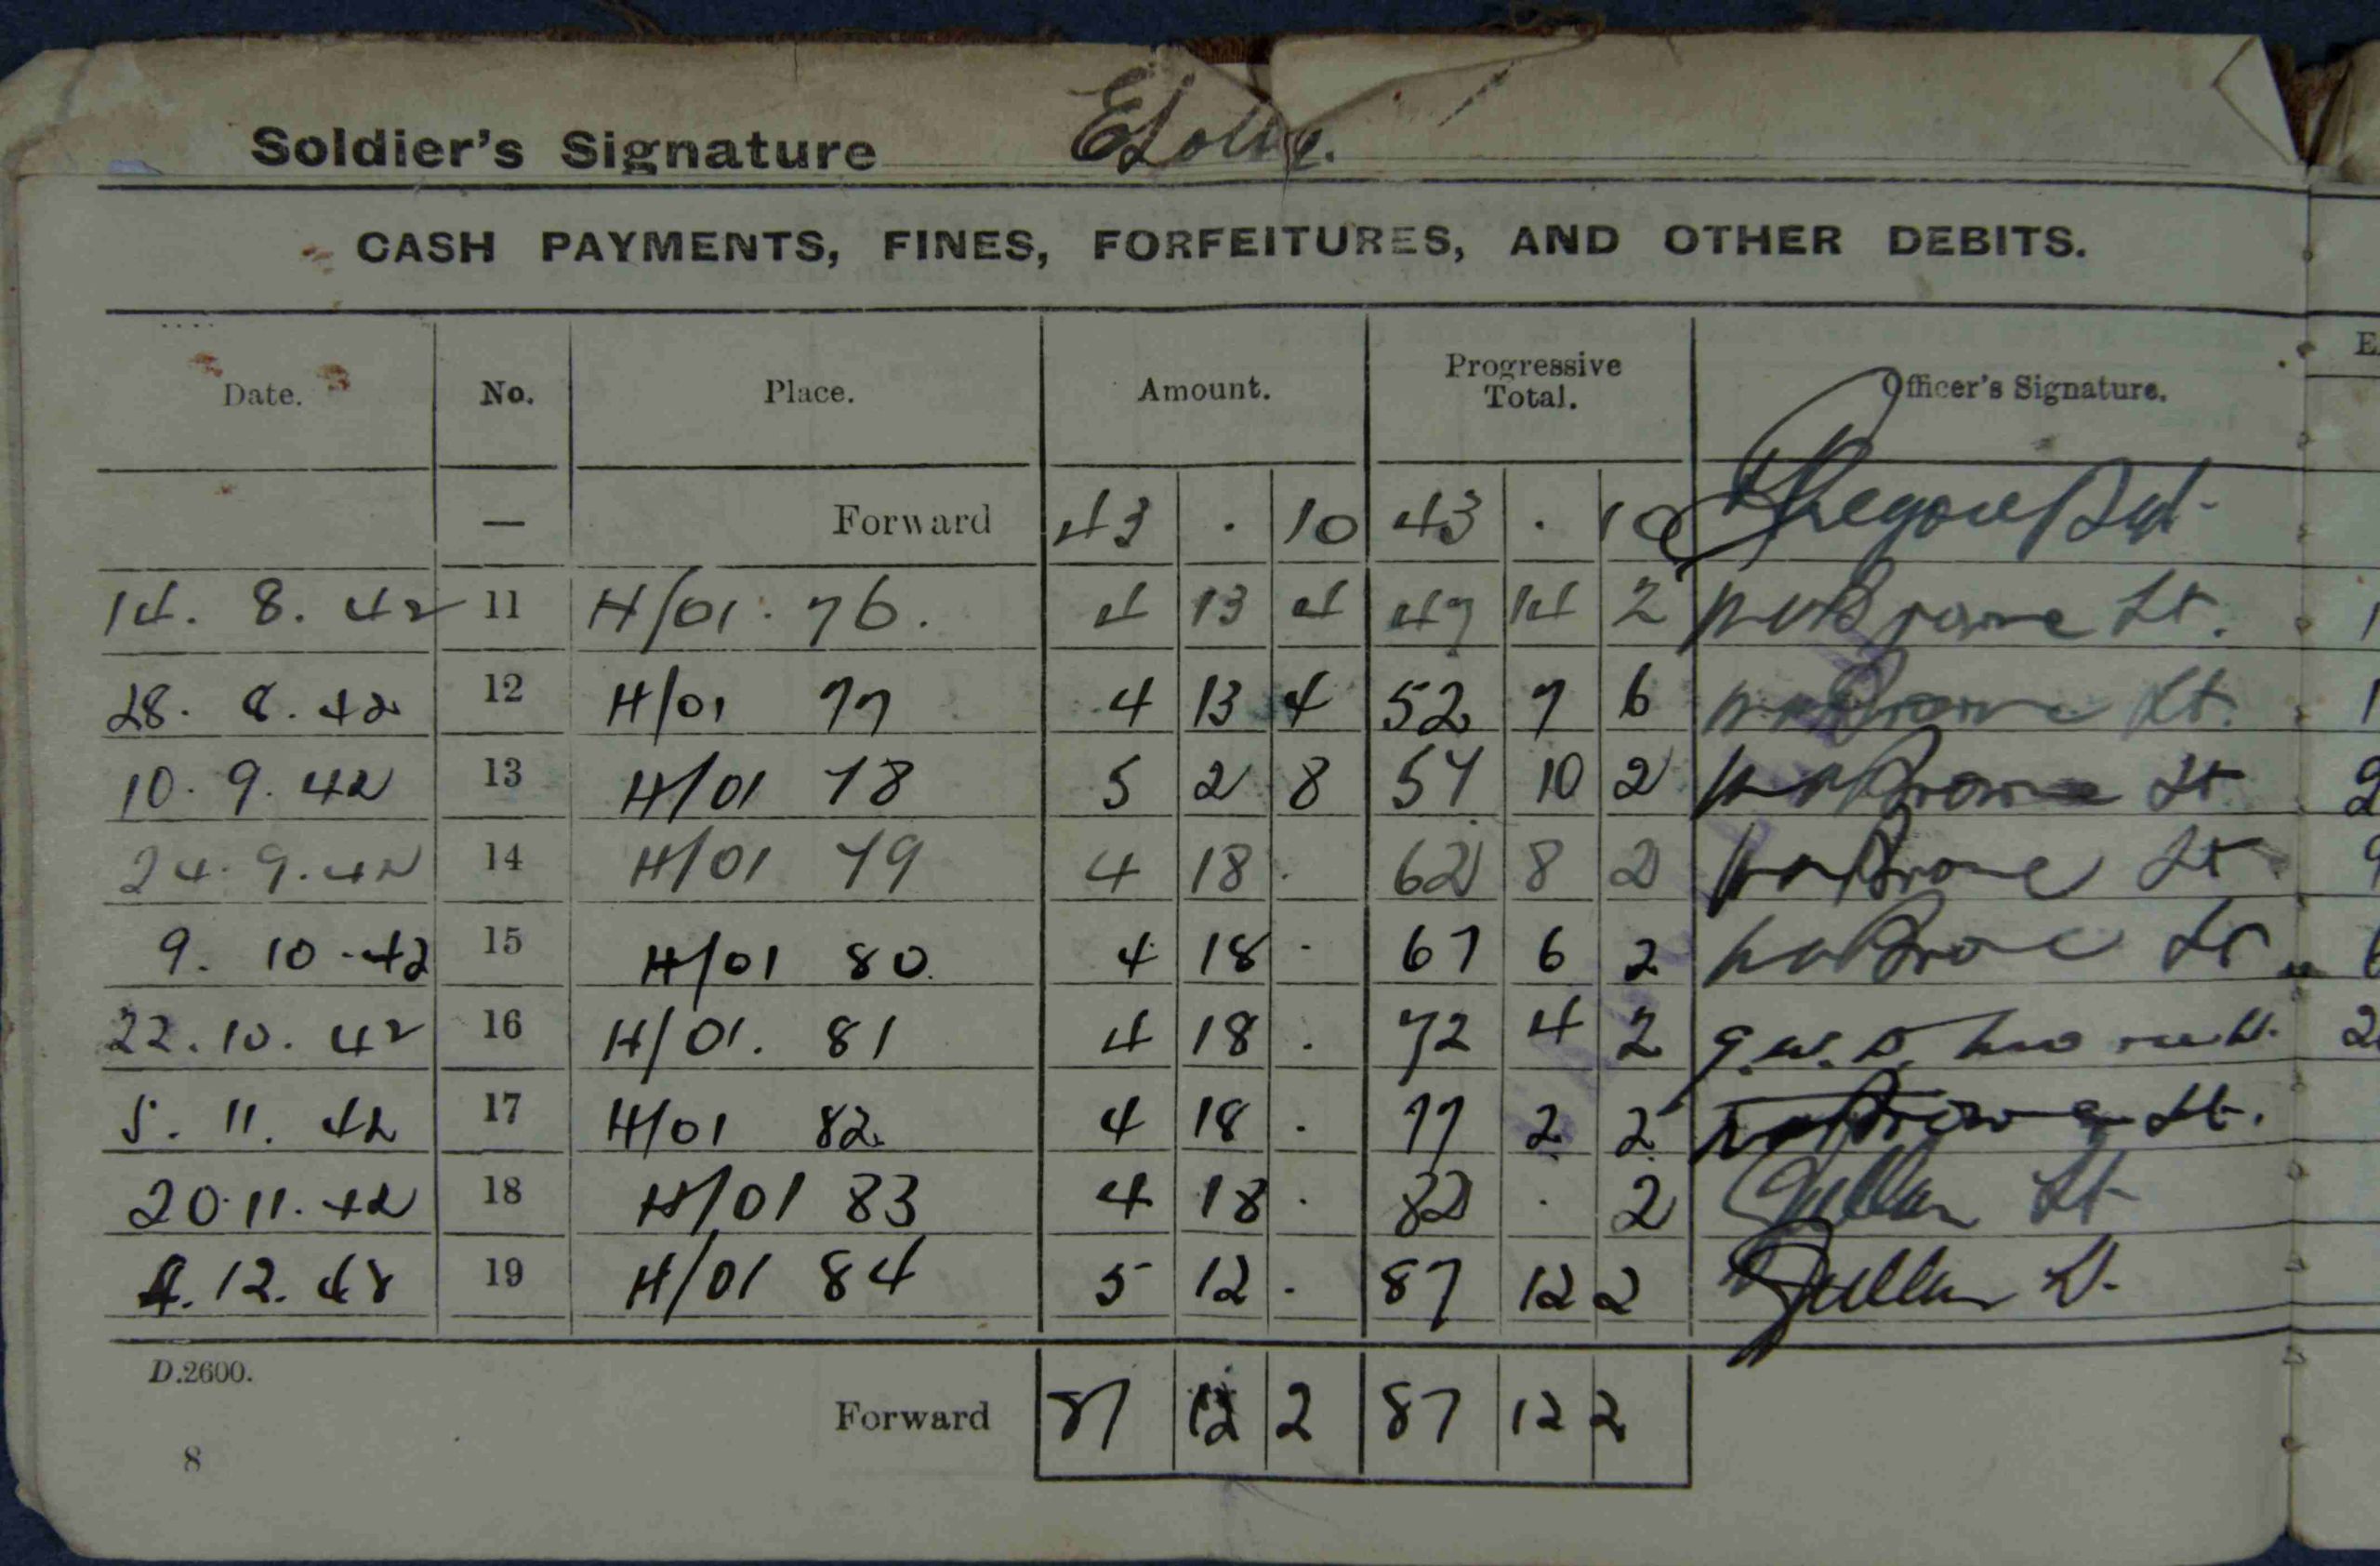 Soldier's Signature
CASH PAYMENTS, FINES, FORFEITURES, AND OTHER DEBITS.
Date. No. Place. Amount. Progressive Total. Officer's Signature.
— Forward 43 . 10 43 . 10
14. 8. 42 11 H/01. 76. 4 13 4 47 14 2 Browne Lt.
28. 8. 42 12 H/01 77 4 13 4 52 7 6 Browne Lt.
10. 9. 42 13 H/01 78 5 2 8 57 10 2 Browne Lt
24. 9. 42 14 H/01 79 4 18 . 62 8 2 Browne Lt
9. 10. 42 15 H/01 80. 4 18 . 67 6 2 Browne Lt
22. 10. 42 16 H/01. 81 4 18 . 72 4 2
5. 11. 42 17 H/01 82. 4 18 . 77 2 2 Browne Lt.
20. 11. 42 18 H/01 83 4 18 . 82 . 2 Lt
4. 12. 42 19 H/01 84 5 12 . 87 12 2 Lt.
D.2600.
Forward 87 12 2 87 12 2
8